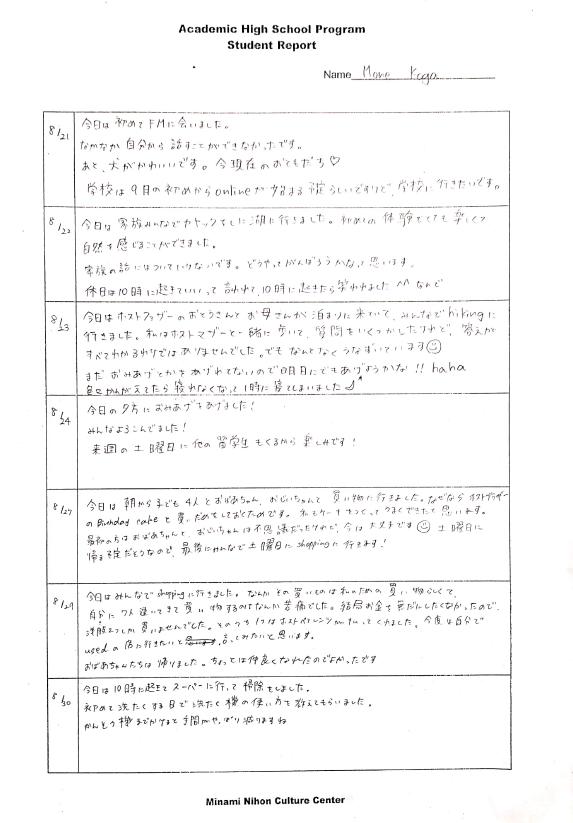 Academic High School Program
Student Report
Name Mone Koga
8/21
今日は初めてFMに会いました。
なかなか自分から話すことができなかったです。
あと、犬がかわいいです。今現在のおともだち♡
学校は9月の初めからonlineが始まる予定らしいですけど、学校に行きたいです。
8/22
今日は家族みんなでカヤックをしに湖に行きました。初めての体験でとても楽しくて
自然を感じることができました。
家族の話にはついていけないです。どうやってがんばろうかなって思います。
休日は10時に起きていいって言われて、10時に起きたら笑われました ^^ なんで
8/23
今日はホストファザーのおとうさんとお母さんが泊まりに来ていて、みんなでhikingに
行きました。私はホストマザーと一緒に歩いて、質問をいくつかしたけれど、答えが
すべてわかるわけではありませんでした。でもなんとなくうなずいています☺
まだおみあげとかをあげれてないので明日にでもあげようかな!! haha
色々かんがえてたら寝れなくなって1時に寝てしまいました
8/24
今日の夕方におみあげをあげました!
みんなよろこんでました!
来週の土曜日に他の留学生もくるから楽しみです!
8/27
今日は朝から子ども4人とおばあちゃん、おじいちゃんと買い物に行きました。なぜならホストブラザー
のBirthday cakeを買い だめをしておくためです。私もケーキをつくって、うまくできたと思います。
最初のうちはおばあちゃんと、おじいちゃんは不思議だったけれど、今は大丈夫です☺ 土曜日に
帰る予定だそうなので、最後にみんなで土曜日にshoppingに行きます!
8/29
今日はみんなでshoppingに行きました。なんかその買いものは私のための買い物らしくて、
自分に7人連いてきて買い物するのはなんか苦痛でした。結局お金を無だにしたくなかったので、
洗顔フォームしか買いませんでした。そのうち1つはホストペアレンツが払ってくれました。今度は自分で
usedの店に行きたいと言ってみたいと思います。
おばあちゃんたちは帰りました。ちょっとは仲良くなれたのでよかったです
8/30
今日は10時に起きてスーパーに行って掃除をしました。
初めて洗たくする日で洗たく機の使い方を教えてもらいました。
かんそう機までかけると手間がやっぱり減りますね
Minami Nihon Culture Center